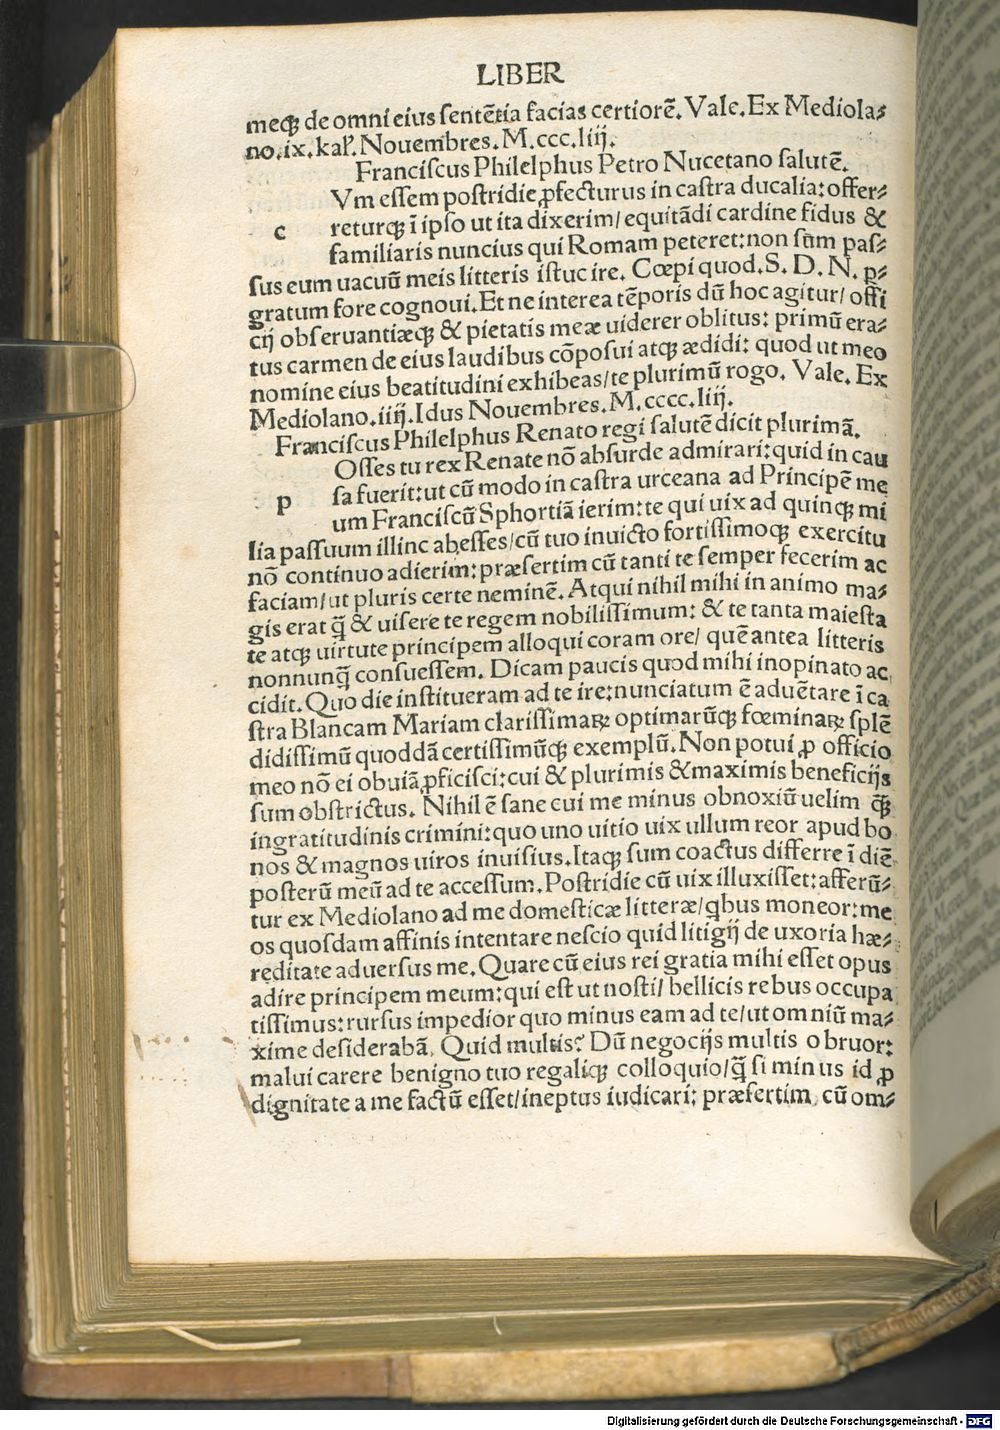 LIBER
meqꝫ de omni eius ſentẽtia facias certiorẽ. Vale. Ex Mediola⸗
no.ix.kaꝉ. Nouembres. M.ccc.liij.
Franciſcus Philelphus Petro Nucetano ſalutẽ.
Vm eſſem poſtridie ꝓfecturus in caſtra ducalia: offer⸗
c returqꝫ ĩ ipſo ut ita dixerim/ equitãdi cardine fidus &
familiaris nuncius qui Romam peteret: non ſũm paſ⸗
ſus eum uacuũ meis litteris iſtuc ire. Cœpi quod. S. D. N. ꝑ⸗
gratum fore cognoui. Et ne interea tẽporis dũ hoc agitur/ offi
cij obſeruantiæqꝫ & pietatis meæ uiderer oblitus: primũ era⸗
tus carmen de eius laudibus cõpoſui atqꝫ ædidi: quod ut meo
nomine eius beatitudini exhibeas/ te plurimũ rogo. Vale. Ex
Mediolano.iiij. Idus Nouembres. M.cccc.liij.
Franciſcus Philelphus Renato regi ſalutẽ dicit plurimã.
Oſſes tu rex Renate nõ abſurde admirari: quid in cau
p ſa fuerit: ut cũ modo in caſtra urceana ad Principẽ me
um Franciſcũ Sphortiã ierim: te qui uix ad quinqꝫ mi
lia paſſuum illinc abeſſes/ cũ tuo inuicto fortiſſimoqꝫ exercitu
nõ continuo adierim: præſertim cũ tanti te ſemper fecerim ac
faciam/ ut pluris certe neminẽ. Atqui nihil mihi in animo ma⸗
gis erat q̃ & uiſere te regem nobiliſſimum: & te tanta maieſta
te atqꝫ uirtute principem alloqui coram ore/ quẽ antea litteris
nonnunq̃ conſueſſem. Dicam paucis quod mihi inopinato ac
cidit. Quo die inſtitueram ad te ire: nunciatum ẽ aduẽtare ĩ ca
ſtra Blancam Mariam clariſſimaꝝ optimarũqꝫ fœminaꝝ ſplẽ
didiſſimũ quoddã certiſſimũqꝫ exemplũ. Non potui ꝓ officio
meo nõ ei obuiã ꝓficiſci: cui & plurimis & maximis beneficijs
ſum obſtrictus. Nihil ẽ ſane cui me minus obnoxiũ uelim q̃ꝫ
ingratitudinis crimini: quo uno uitio uix ullum reor apud bo
nos & magnos uiros inuiſius. Itaqꝫ ſum coactus differre ĩ diẽ
poſterũ meũ ad te acceſſum. Poſtridie cũ uix illuxiſſet: afferũ⸗
tur ex Mediolano ad me domeſticæ litteræ/ qbus moneor: me
os quoſdam affinis intentare neſcio quid litigij de uxoria hæ⸗
reditate aduerſus me. Quare cũ eius rei gratia mihi eſſet opus
adire principem meum: qui eſt ut noſti/ bellicis rebus occupa
tiſſimus: rurſus impedior quo minus eam ad te/ ut omniũ ma⸗
xime deſiderabã. Quid multis? Dũ negocijs multis obruor:
malui carere benigno tuo regaliqꝫ colloquio/ q̃ ſi minus id ꝓ
dignitate a me factũ eſſet/ ineptus iudicari: præſertim cũ om⸗
Digitalisierung gefördert durch die Deutsche Forschungsgemeinschaft - DFG